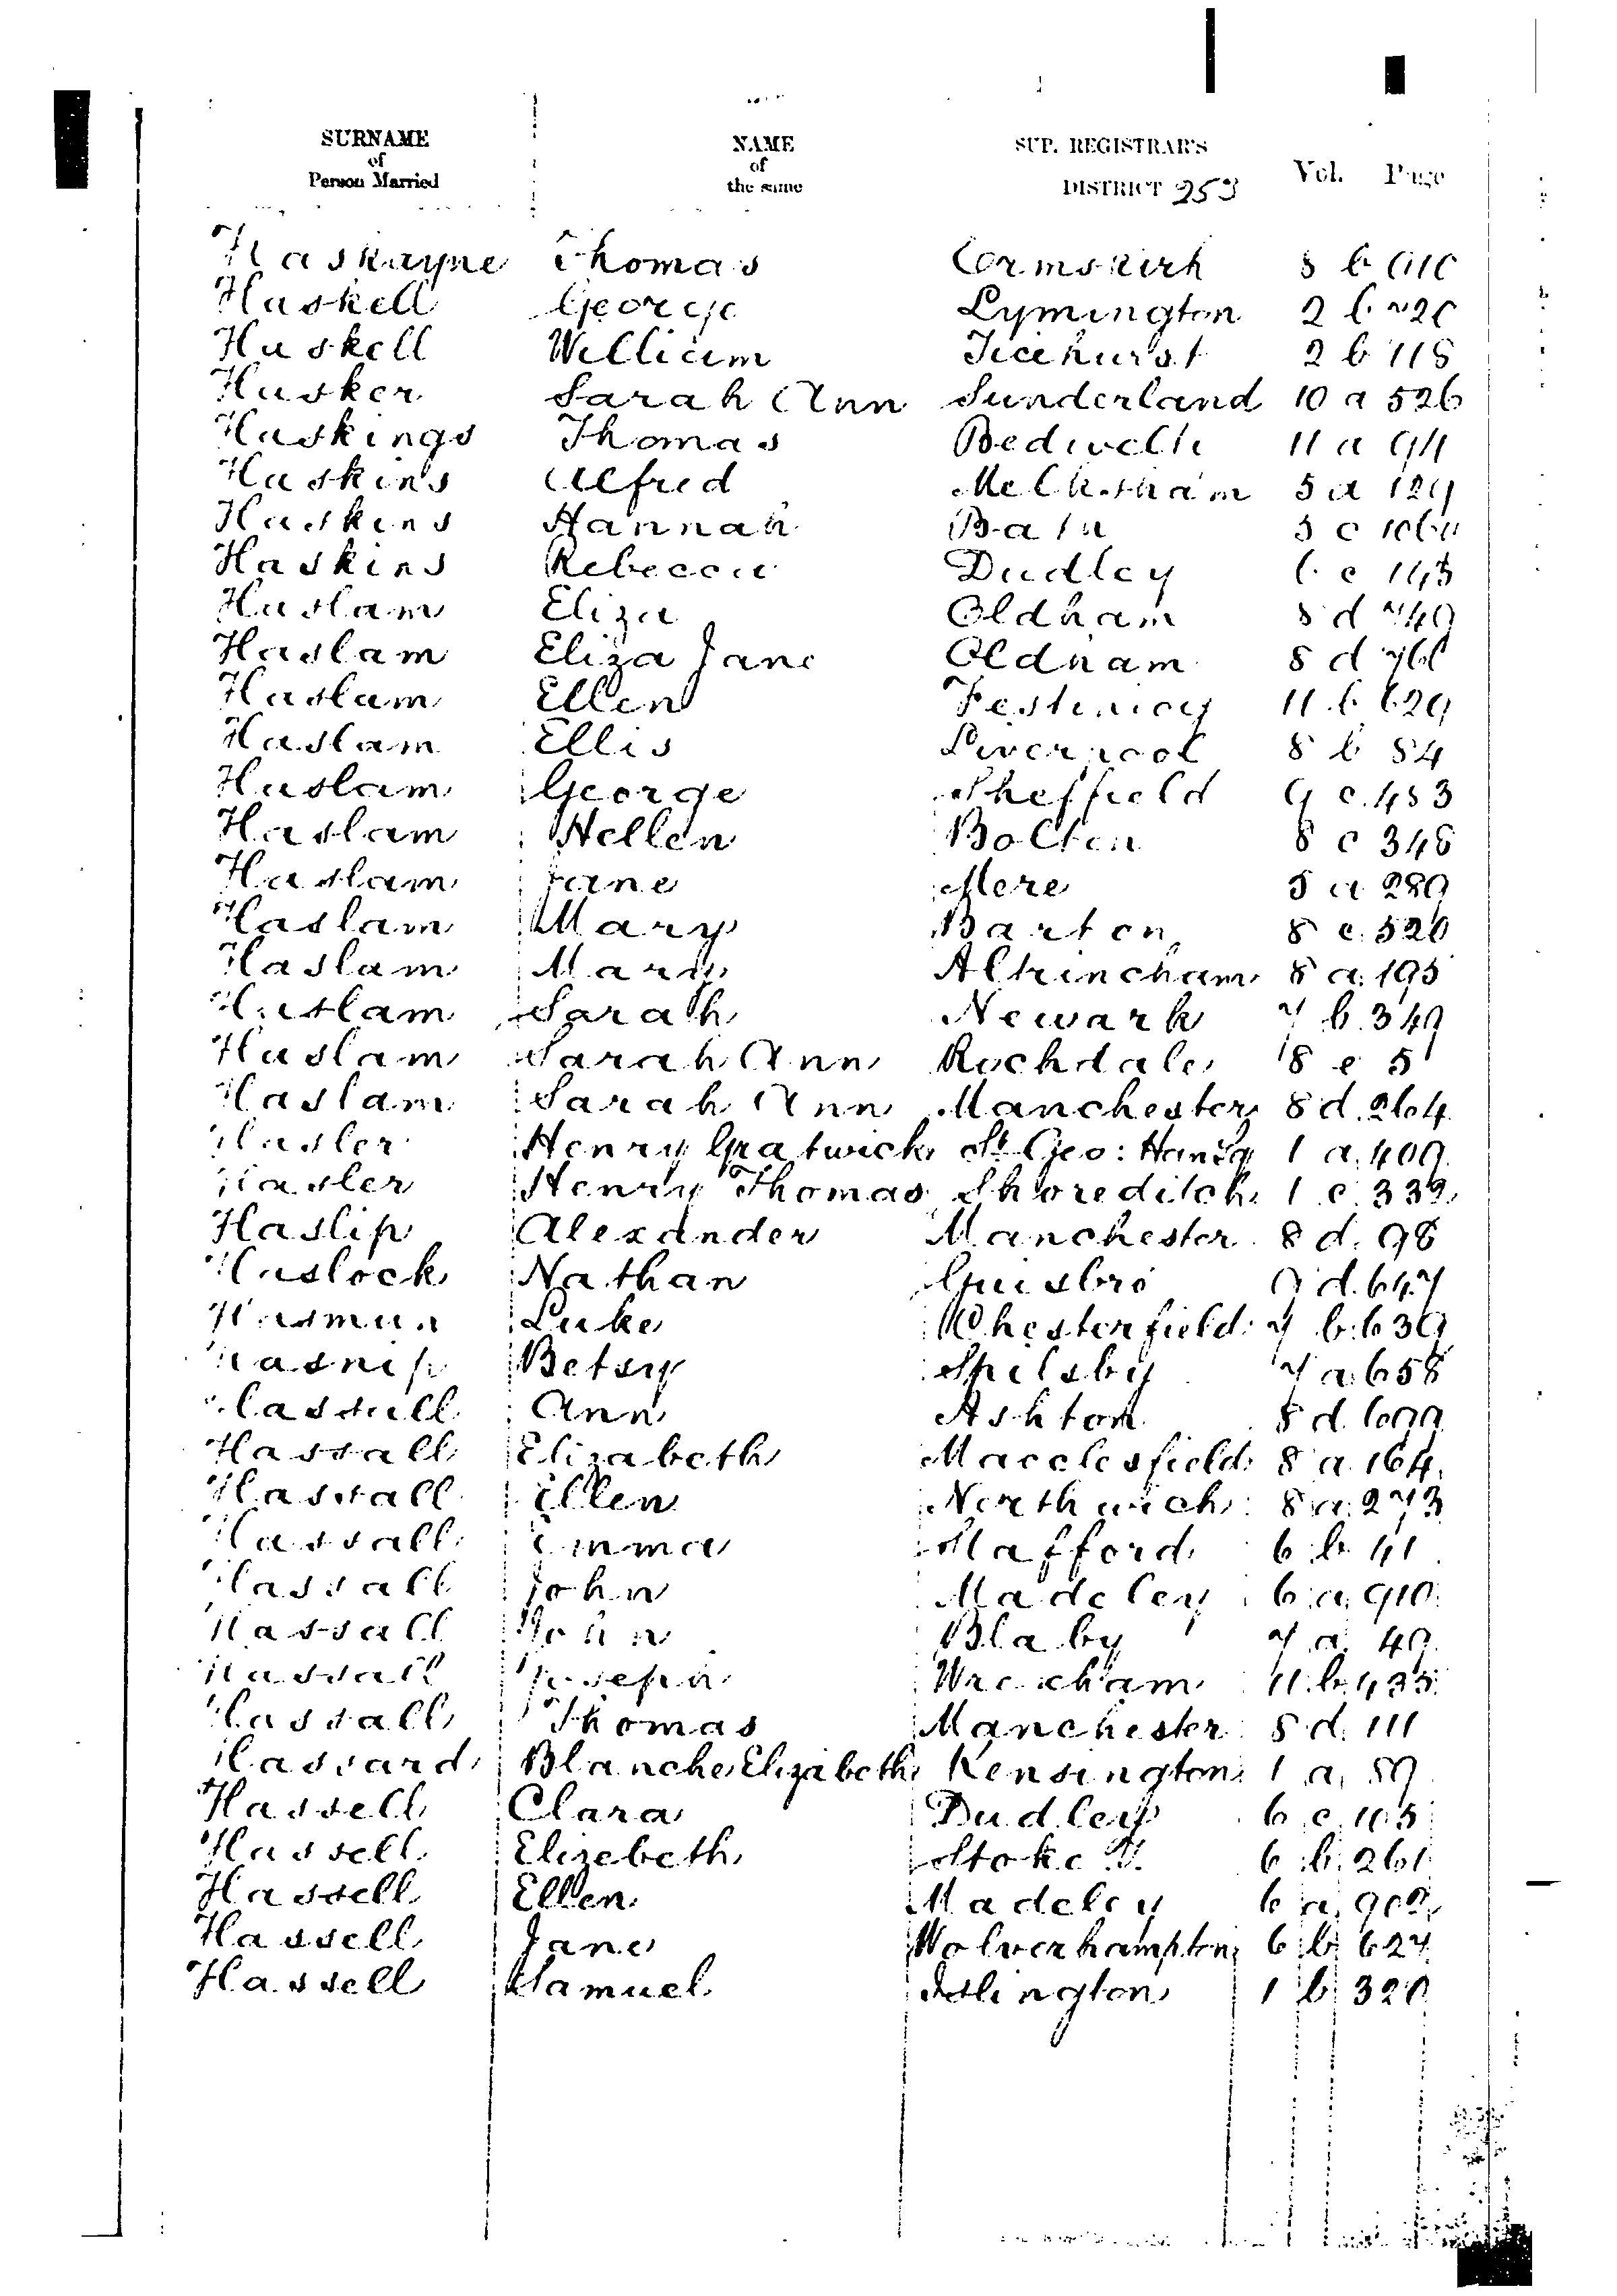 SURNAME of Person Married NAME of the same SUP. REGISTRAR'S DISTRICT 253 Vol. Page
Haskayne Thomas Ormskirk 8 b
Haskell George Lymington 2 b
Haskell William Ticehurst 2 b 118
Hasker Sarah Ann Sunderland 10 a 526
Haskings Thomas Bedwelty 11 a
Haskins Alfred Melksham 5 a 129
Haskins Hannah Bath 5 c
Haskins Rebecca Dudley 6 c 143
Haslam Eliza Oldham 8 d 740
Haslam Eliza Jane Oldham 8 d
Haslam Ellen Festiniog 11 b 629
Haslam Ellis Liverpool 8 b 84
Haslam George Sheffield 9 c 453
Haslam Hellen Bolton 8 c 348
Haslam Jane Mere 5 a 289
Haslam Mary Barton 8 c 520
Haslam Mary Altrincham 8 a 195
Haslam Sarah Newark 7 b 349
Haslam Sarah Ann Rochdale 8 e 5
Haslam Sarah Ann Manchester 8 d 264
Hasler Henry Gratwick St Geo: Han Sq 1 a 409
Hasler Henry Thomas Shoreditch 1 c 332
Haslip Alexander Manchester 8 d 98
Haslock Nathan Guisbro 9 d 647
Hasman Luke Chesterfield 7 b 639
Hasnip Betsy Spilsby 7 a 658
Hassall Ann Ashton 8 d 699
Hassall Elizabeth Macclesfield 8 a 164
Hassall Ellen Northwich 8 a 273
Hassall Emma Stafford 6 b 41
Hassall John Madeley 6 a 910
Hassall John Blaby 7 a 49
Hassall Joseph Wrexham 11 b 435
Hassall Thomas Manchester 8 d 111
Hassard Blanche Elizabeth Kensington 1 a 89
Hassell Clara Dudley 6 c 105
Hassell Elizebeth Stoke T. 6 b 261
Hassell Ellen Madeley 6 a 902
Hassell Jane Wolverhampton 6 b 627
Hassell Samuel Islington 1 b 320